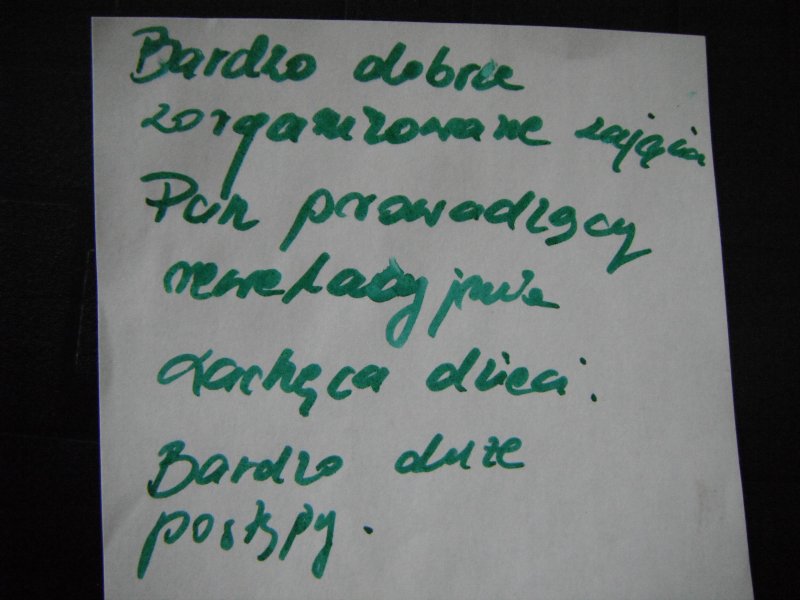 Bardzo dobrze
zorganizowane zajęcia
Pan prowadzący
rewelacyjnie
zachęca dzieci.
Bardzo duże
postępy.